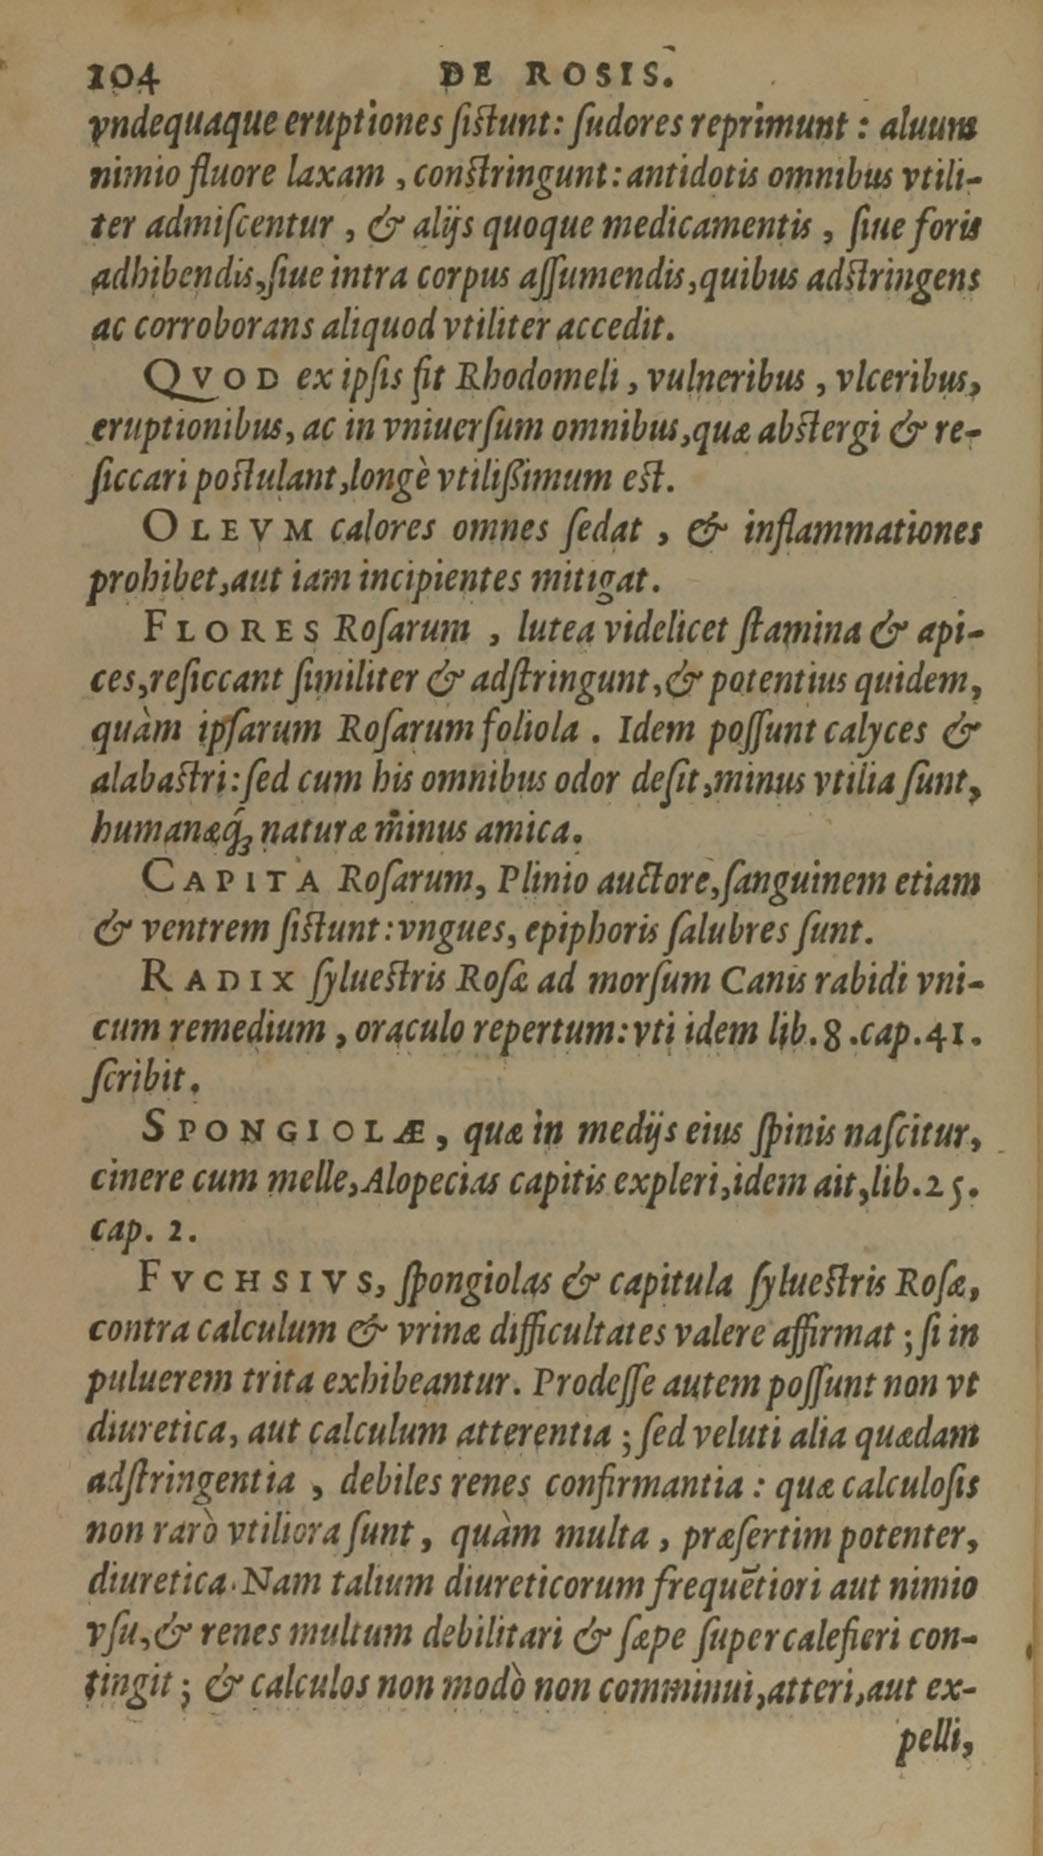 104 DE ROSIS.
vndequaque eruptiones sistunt: sudores reprimunt : aluum
nimio fluore laxam , constringunt: antidotis omnibus vtili-
ter admiscentur , & alijs quoque medicamentis , siue foris
adhibendis, siue intra corpus assumendis, quibus adstringens
ac corroborans aliquod vtiliter accedit.
QVOD ex ipsis fit Rhodomeli , vulneribus , vlceribus,
eruptionibus, ac in vniuersum omnibus, quæ abstergi & re-
siccari postulant, longè vtilißimum est.
OLEVM calores omnes sedat , & inflammationes
prohibet, aut iam incipientes mitigat.
FLORES Rosarum , lutea videlicet stamina & api-
ces, resiccant similiter & adstringunt, & potentius quidem,
quàm ipsarum Rosarum foliola . Idem possunt calyces &
alabastri: sed cum his omnibus odor desit, minus vtilia sunt,
humanæq́ꝫ naturæ minus amica.
CAPITA Rosarum, Plinio auctore, sanguinem etiam
& ventrem sistunt: vngues, epiphoris salubres sunt.
RADIX syluestris Rosæ ad morsum Canis rabidi vni-
cum remedium , oraculo repertum: vti idem lib. 8 .cap. 41.
scribit.
SPONGIOLÆ, quæ in medijs eius spinis nascitur,
cinere cum melle, Alopecias capitis expleri, idem ait, lib. 25.
cap. 2.
FVCHSIVS, spongiolas & capitula syluestris Rosæ,
contra calculum & vrinæ difficultates valere affirmat ; si in
puluerem trita exhibeantur. Prodesse autem possunt non vt
diuretica, aut calculum atterentia ; sed veluti alia quædam
adstringentia , debiles renes confirmantia : quæ calculosis
non rarò vtiliora sunt, quàm multa , præsertim potenter,
diuretica. Nam talium diureticorum frequẽtiori aut nimio
vsu, & renes multum debilitari & sæpe supercalefieri con-
tingit ; & calculos non modò non comminui, atteri, aut ex-
pelli,